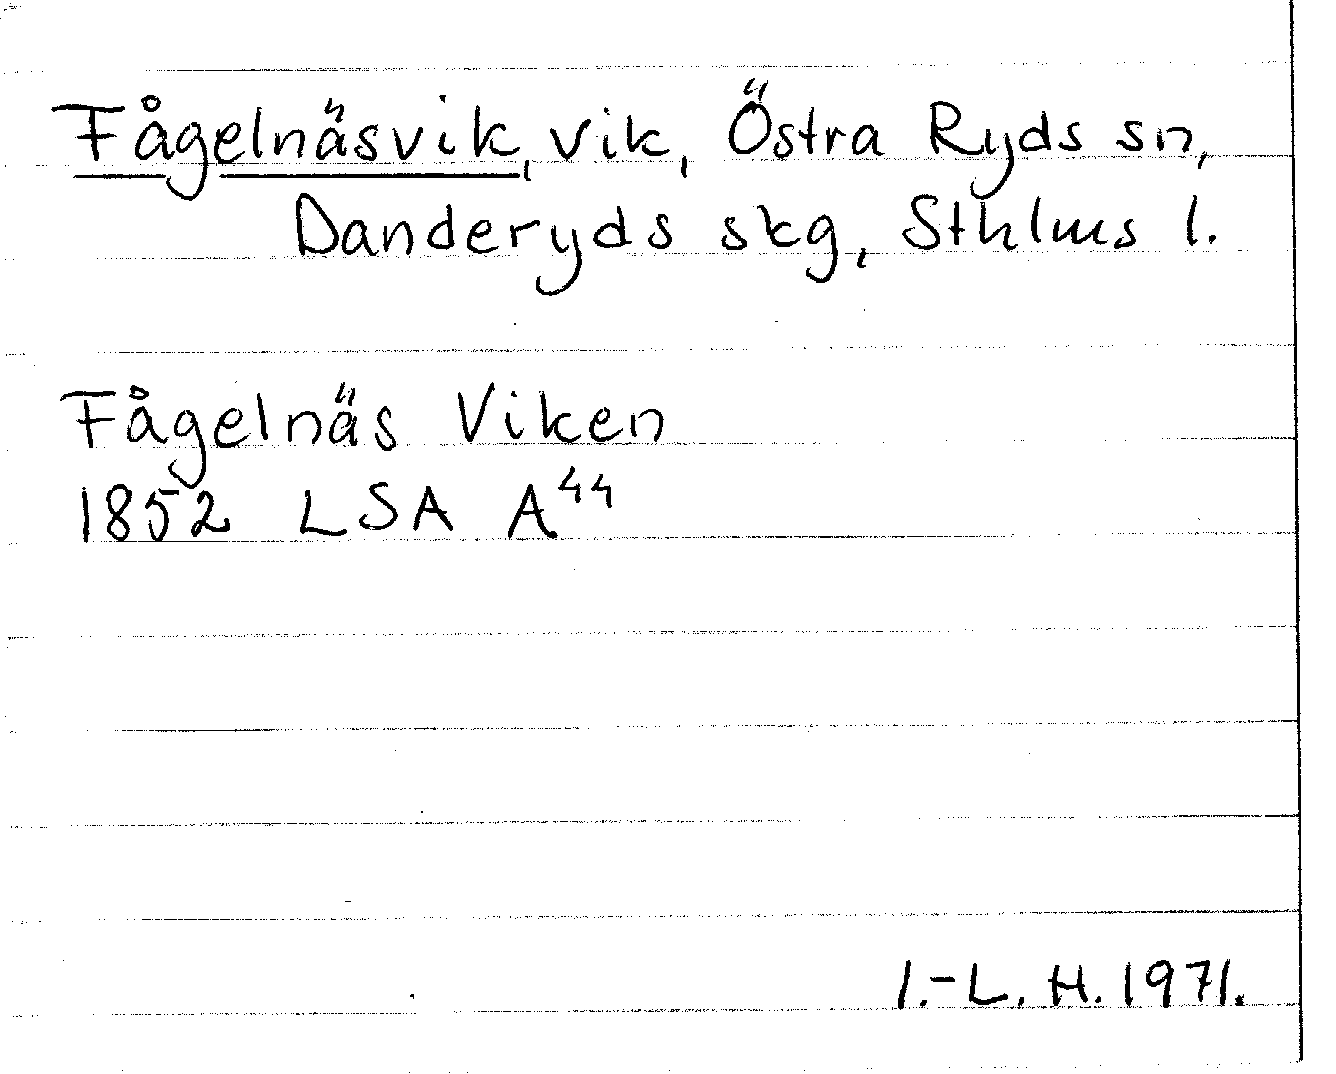 Fågelnäsvik, vik, Östra Ryds sn,
Danderyds skg, Sthlms l.
Fågelnäs Viken
1852 LSA A44
I.-L. H. 1971.